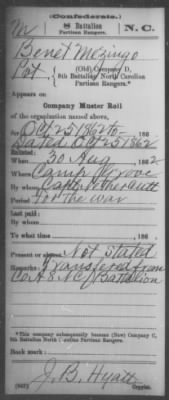 (Confederate.)
M 8 Battalion N. C.
Partisan Rangers.
Benet Mozingo
Pvt, (Old) Company D,
8th Battalion North Carolina
Partisan Rangers.*
Appears on
Company Muster Roll
of the organization named above,
for Oct 25 1862 to , 186 .
Dated Oct 25 1862
Enlisted:
When 30 Aug , 1862
Where Camp
By whom Capt
Period For the war
Last paid:
By whom
To what time , 186 .
Present or absent Not Stated
Remarks: Transferred from
Co A 8 NC Battalion
*This company subsequently became (New) Company C,
8th Battalion North Carolina Partisan Rangers.
Book mark:
J. B. Hyatt
(642) Copyist.